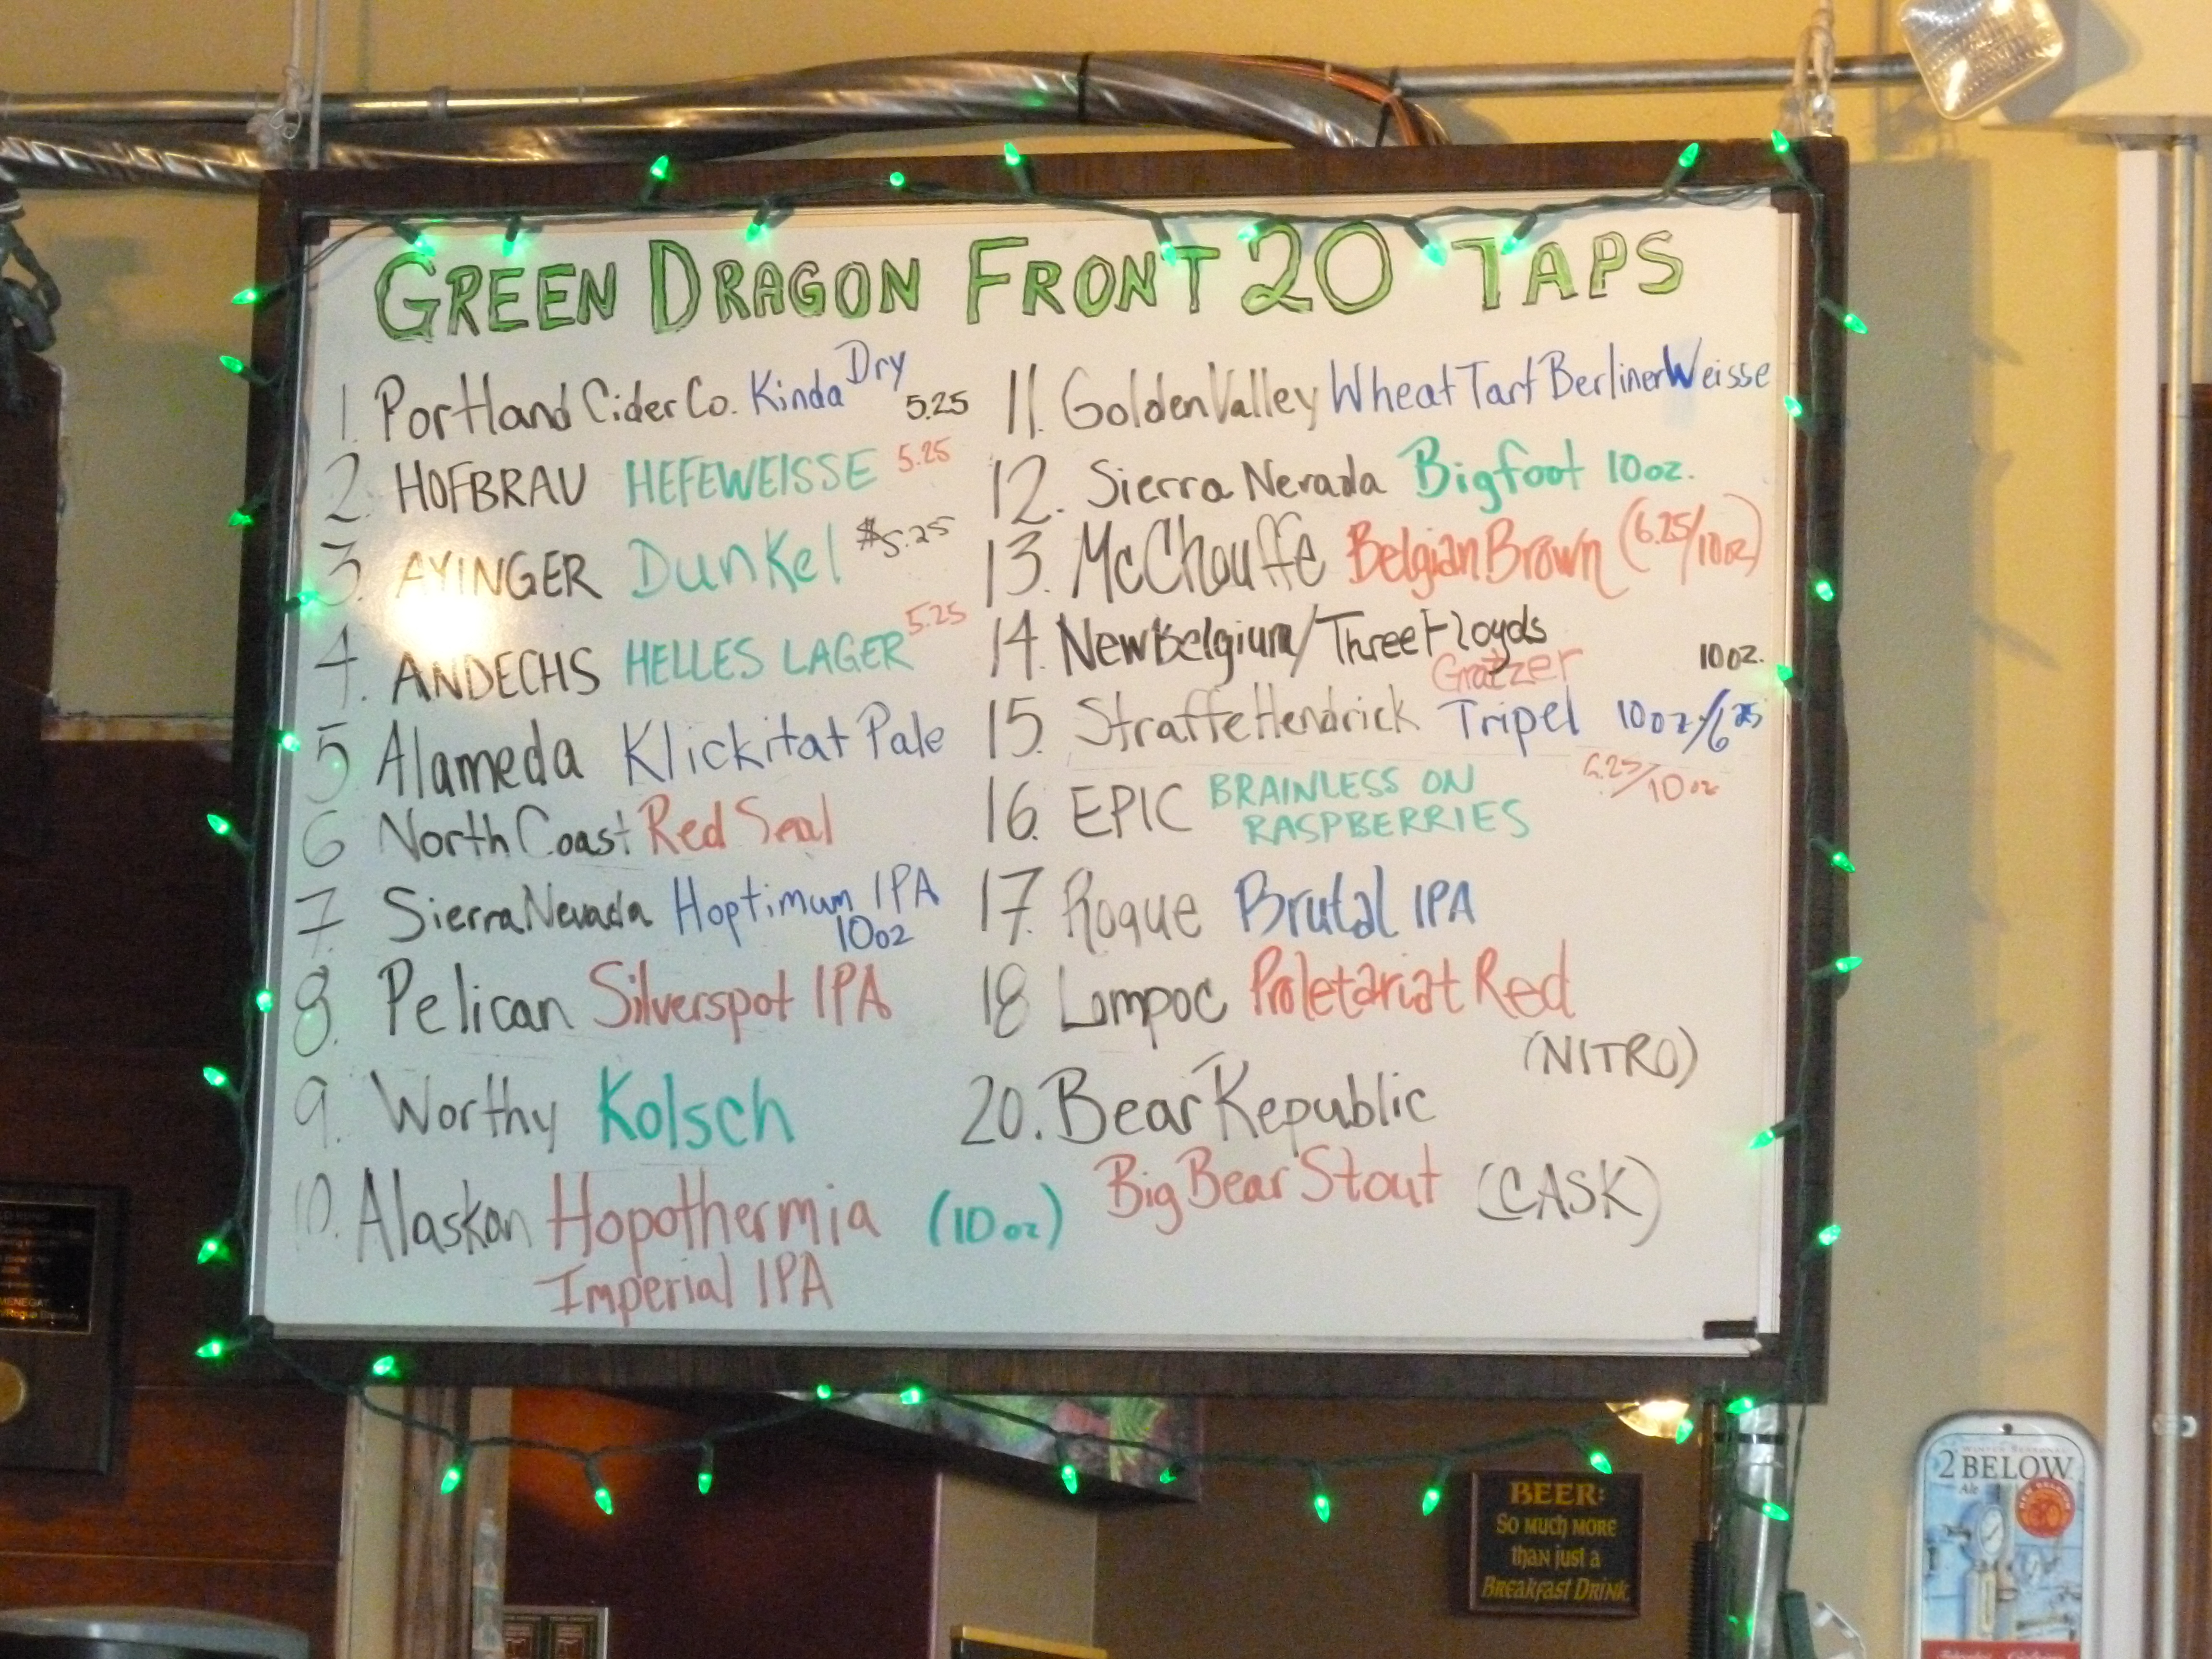 GREEN DRAGON FRONT 20 TAPS
1. Portland Cider Co. Kinda Dry 5.25
2. HOFBRAU HEFEWEISSE 5.25
3. AYINGER Dunkel $5.25
4. ANDECHS HELLES LAGER 5.25
5 Alameda Klickitat Pale
6 North Coast Red Seal
7. Sierra Nevada Hoptimum IPA
10oz
8. Pelican Silverspot IPA
9. Worthy Kolsch
10. Alaskan Hopothermia (10oz)
Imperial IPA
11. Golden Valley Wheat Tart Berliner Weisse
12. Sierra Nevada Bigfoot 10oz.
13. McChouffe Belgian Brown (6.25/10oz)
14. New Belgium/Three Floyds
Gratzer 10oz.
15. Straffe Hendrick Tripel 10oz/6.25
16. EPIC BRAINLESS ON 6.25/10oz
RASPBERRIES
17. Rogue Brutal IPA
18 Lompoc Proletariat Red
(NITRO)
20. Bear Republic
Big Bear Stout (CASK)
BEER:
So much more
than just a
Breakfast Drink
WINTER SEASONAL
2 BELOW
Ale
MENEGAT